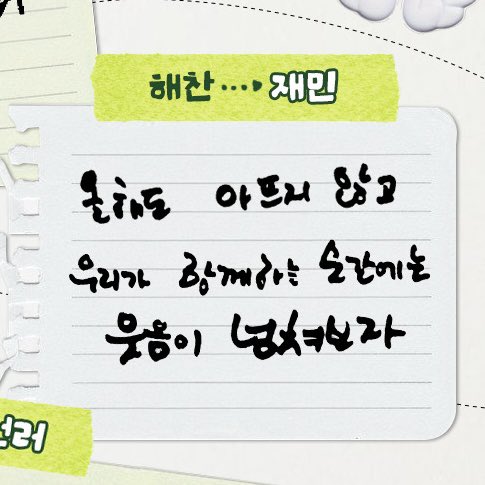 해찬 ····▸ 재민
올해도 아프지 않고
우리가 함께하는 순간에는
웃음이 넘쳐보자
런러